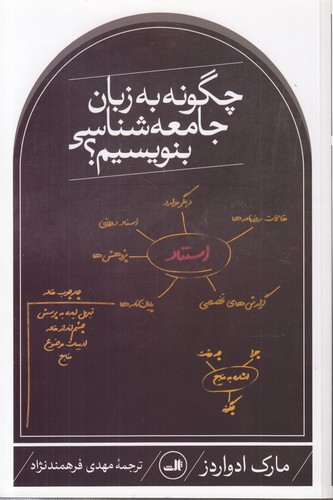 چگونه به زبان
جامعه‌شناسی
بنویسیم؟
دیگر موارد
اسناد دولتی
مقالات روزنامه‌ها
استناد
پژوهش‌ها
پایان‌نامه‌ها
گزارش‌های تخصصی
چارچوب مقاله
تبدیل ایده به پرسش
چشم‌انداز مقاله
ادبیات موضوع
منابع
چه وقت
چرا
اشاره به منابع
چگونه
مارک ادواردز
ثالث
ترجمهٔ مهدی فرهمندنژاد